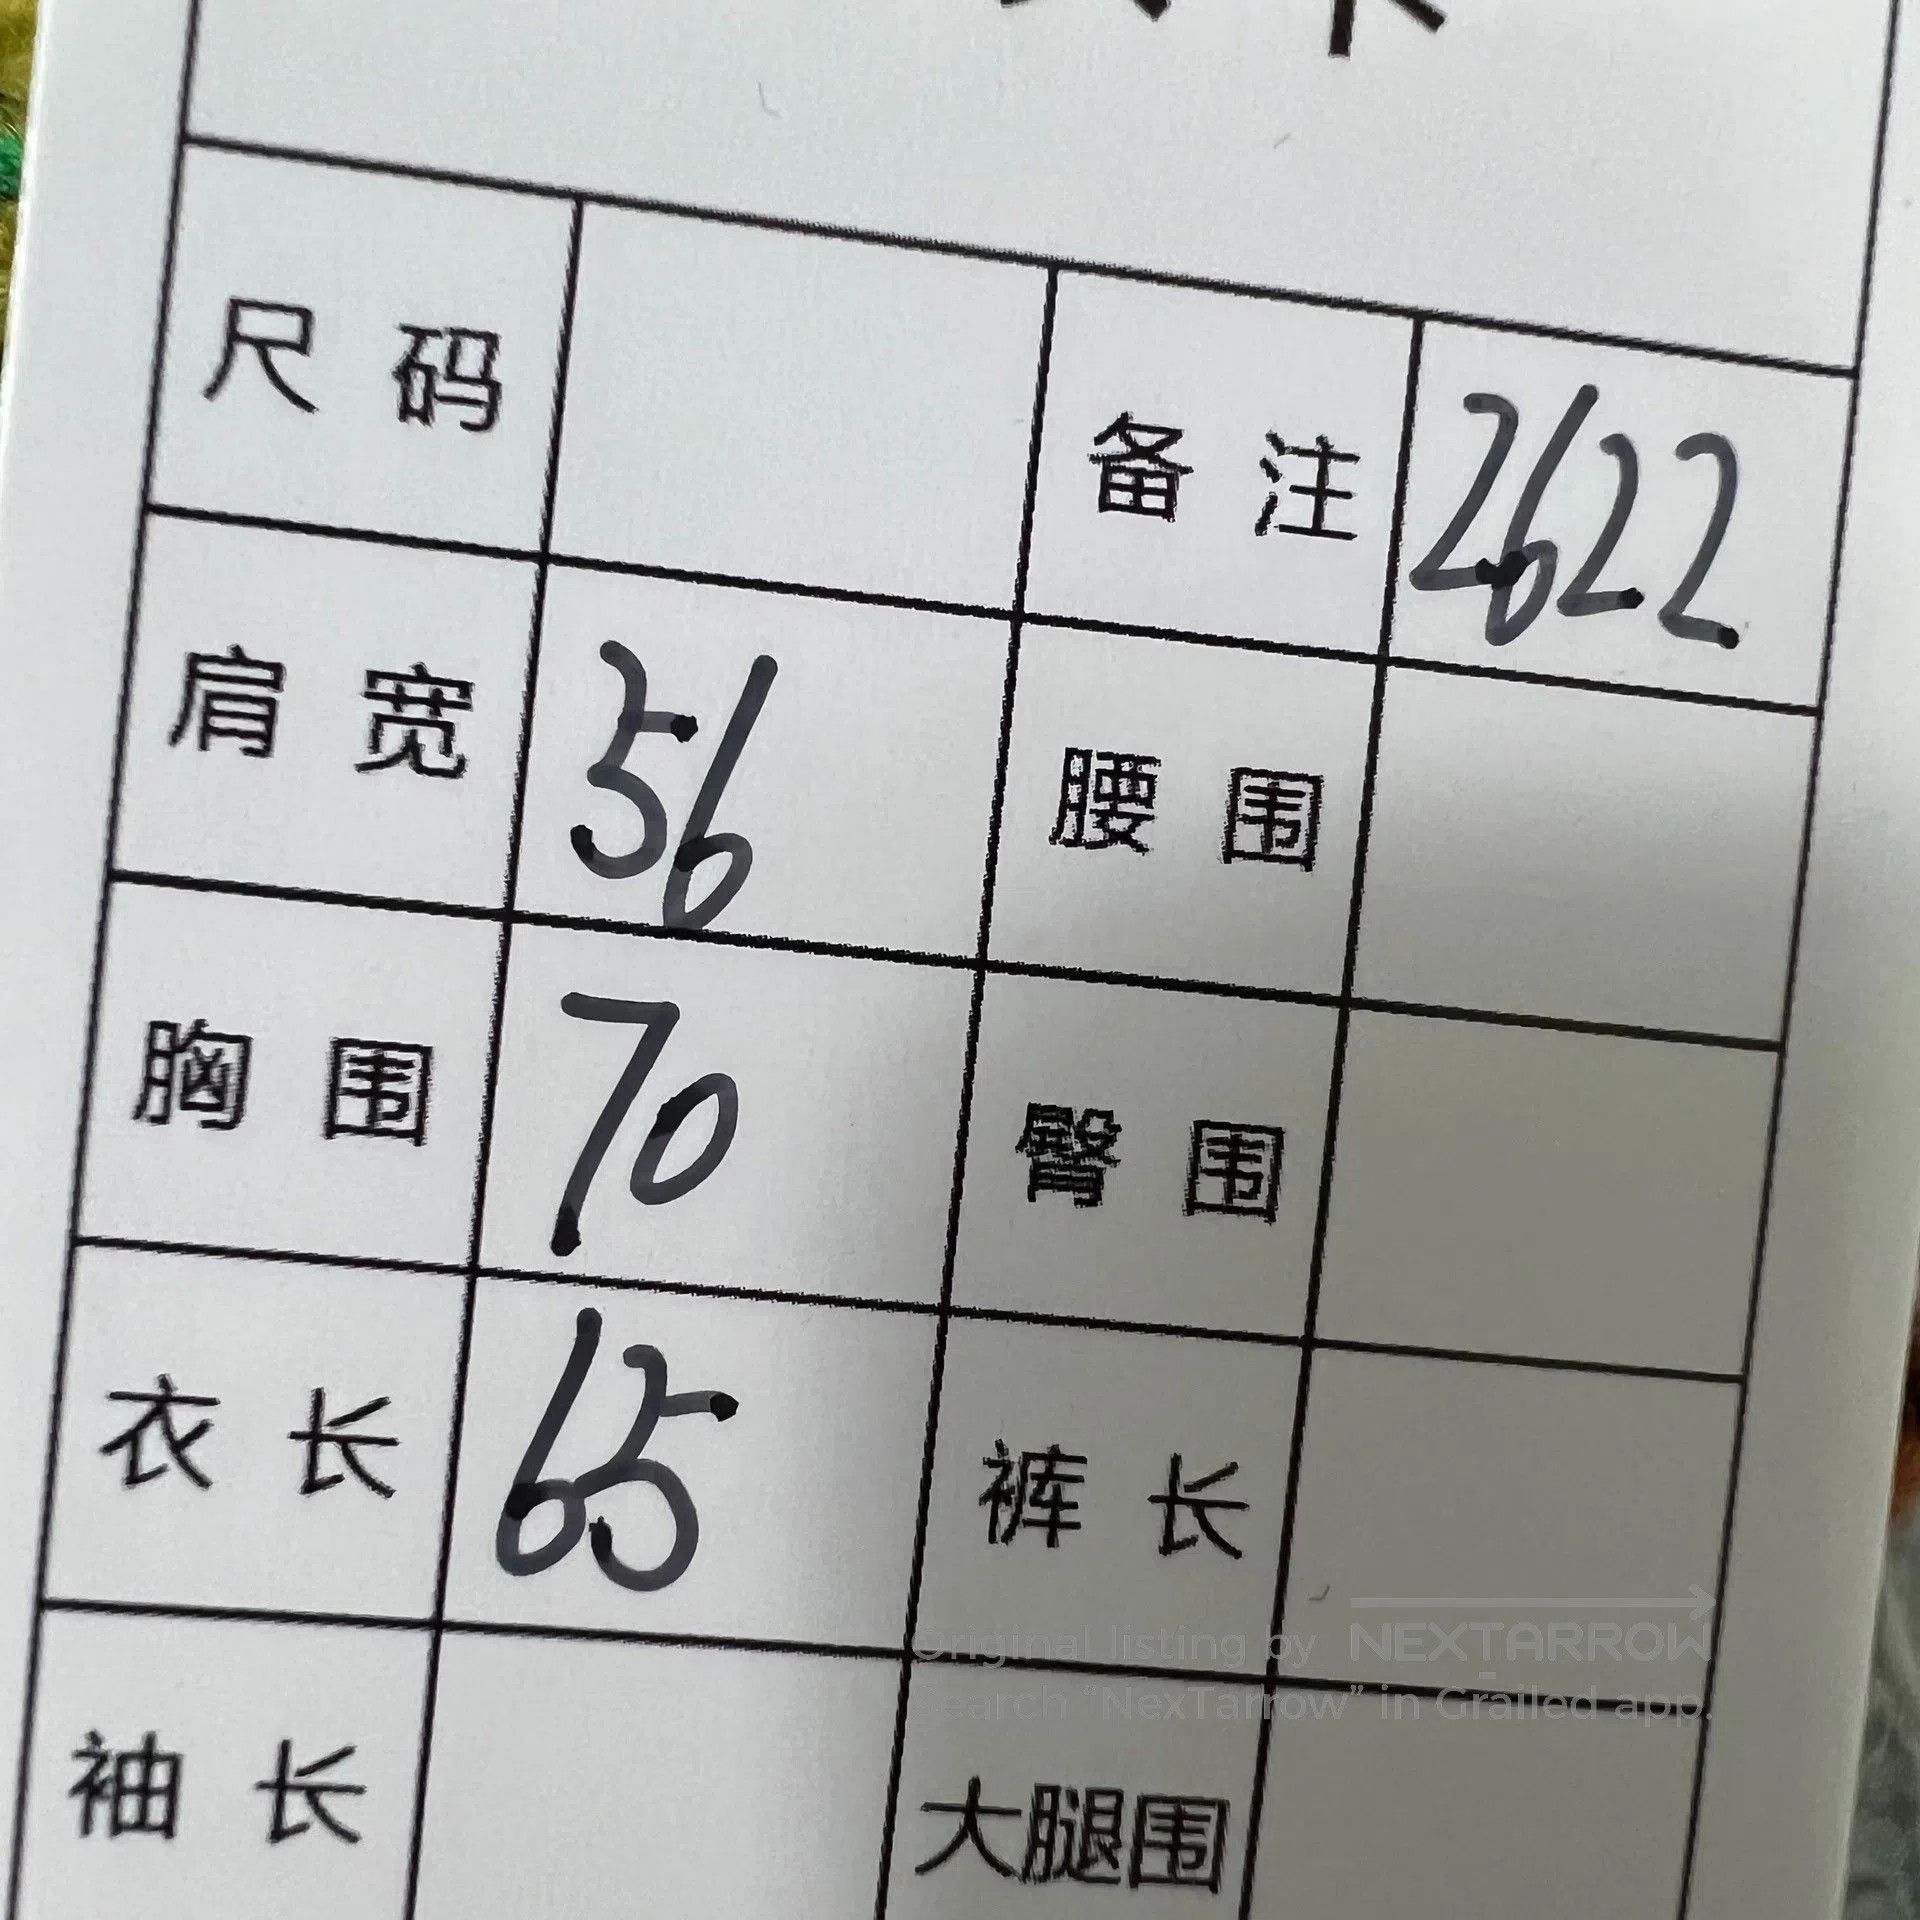 尺码 备注 2622
肩宽 56 腰围
胸围 70 臀围
衣长 65 裤长
Original listing by NEXTARROW
Search “NexTarrow” in Grailed app.
袖长 大腿围